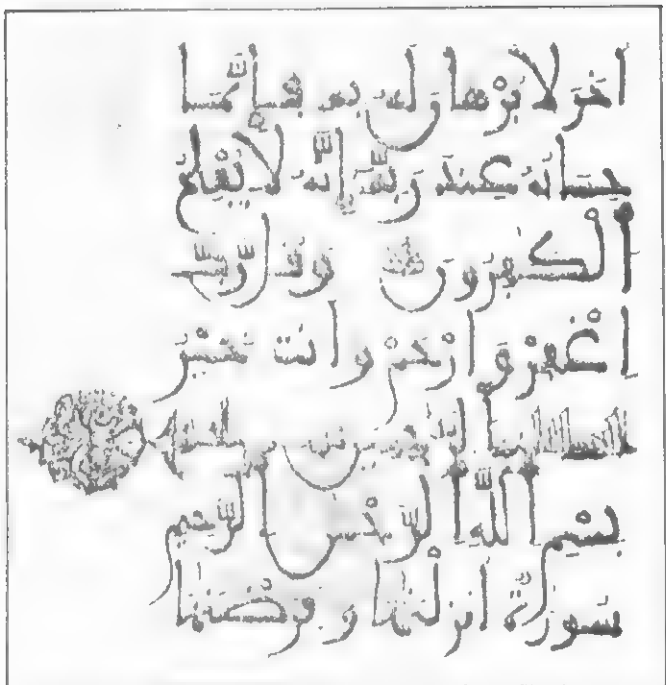 اخَرَ لَا بُرْهَانَ لَهُ بِهِ فَاِنَّمَا
حِسَابُهُ عِنْدَ رَبِّهِ اِنَّهُ لَا يُفْلِحُ
اَلْكَفِرُونَ وَقُل رَّبِّ
اغْفِرْ وَارْحَمْ وَاَنتَ خَيْرُ
بِسْمِ اللَّهِ الرَّحْمَنِ الرَّحِيمِ
سُورَةٌ اَنزَلْنَهَا وَفَرَضْنَهَا